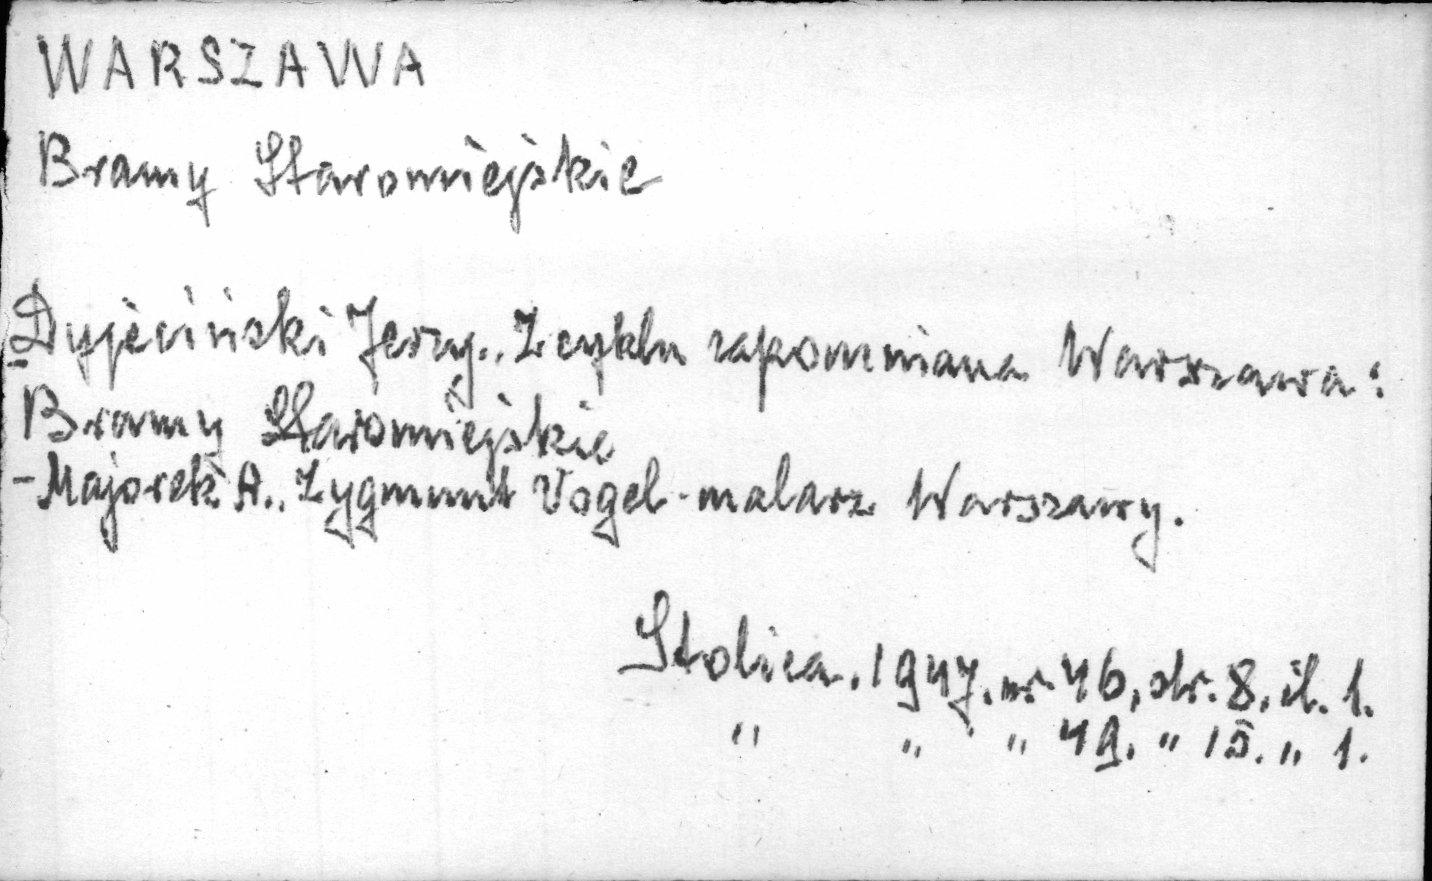 WARSZAWA
Bramy Staromiejskie
Dyjeciński Jerzy., Z cyklu zapomniana Warszawa:
Bramy Staromiejskie
-Majorek A., Zygmunt Vogel-malarz Warszawy.
Stolica. 1947. nr. 46, str. 8, il. 1.
" " " 49. " 15. " 1.